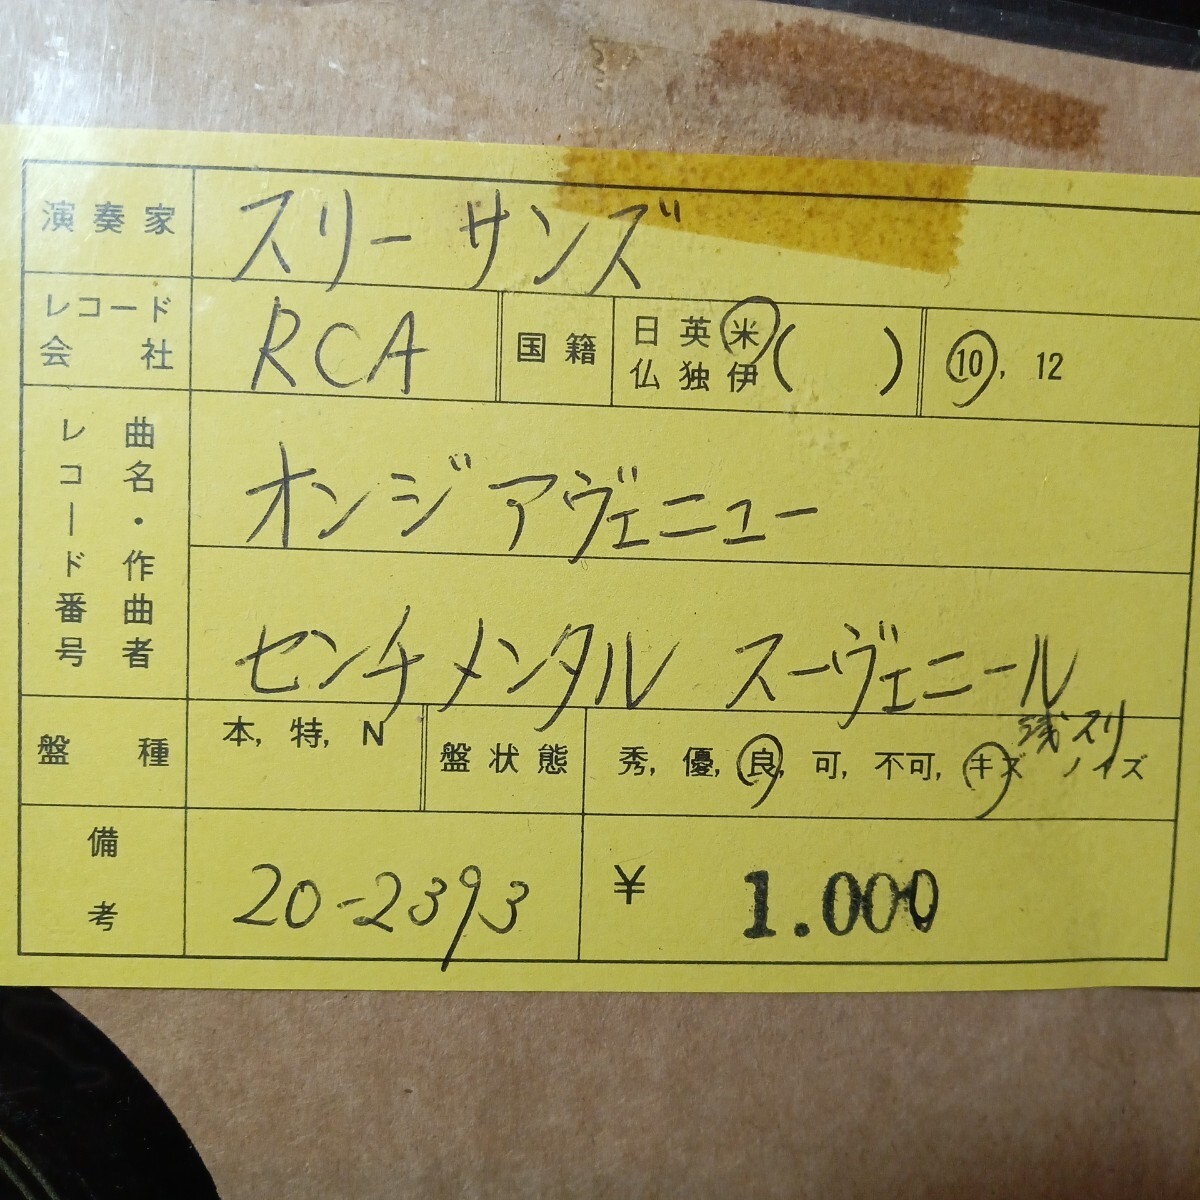 演奏家 スリーサンズ
レコード会社 RCA 国籍 日 英 米 ( ) 10, 12
仏 独 伊
曲名・作曲者 レコード番号
オンジアヴェニュー
センチメンタル スーヴェニール
盤種 本, 特, N 盤状態 秀, 優, 良, 可, 不可, キズ ノイズ
浅スリ
備考 20-2393 ¥ 1.000